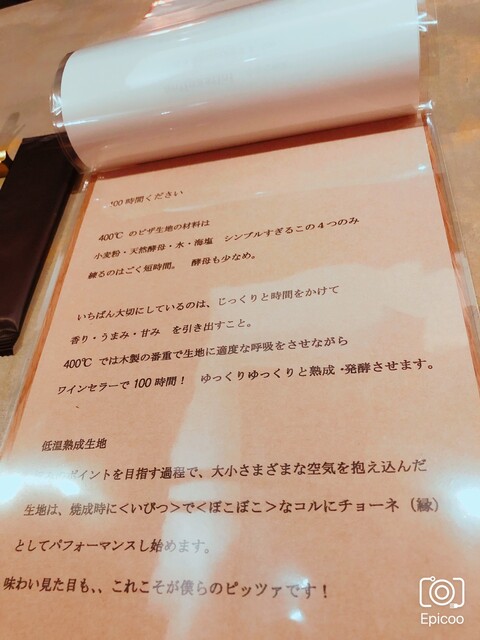 00時間ください
400℃ のピザ生地の材料は
小麦粉・天然酵母・水・海塩 シンプルすぎるこの４つのみ
練るのはごく短時間。 酵母も少なめ。
いちばん大切にしているのは、じっくりと時間をかけて
香り・うまみ・甘み を引き出すこと。
400℃ では木製の番重で生地に適度な呼吸をさせながら
ワインセラーで 100 時間！ ゆっくりゆっくりと熟成・発酵させます。
低温熟成生地
ポイントを目指す過程で、大小さまざまな空気を抱え込んだ
生地は、焼成時に＜いびつ＞で＜ぼこぼこ＞なコルにチョーネ（縁）
としてパフォーマンスし始めます。
味わい見た目も、、これこそが僕らのピッツァです！
Epicoo